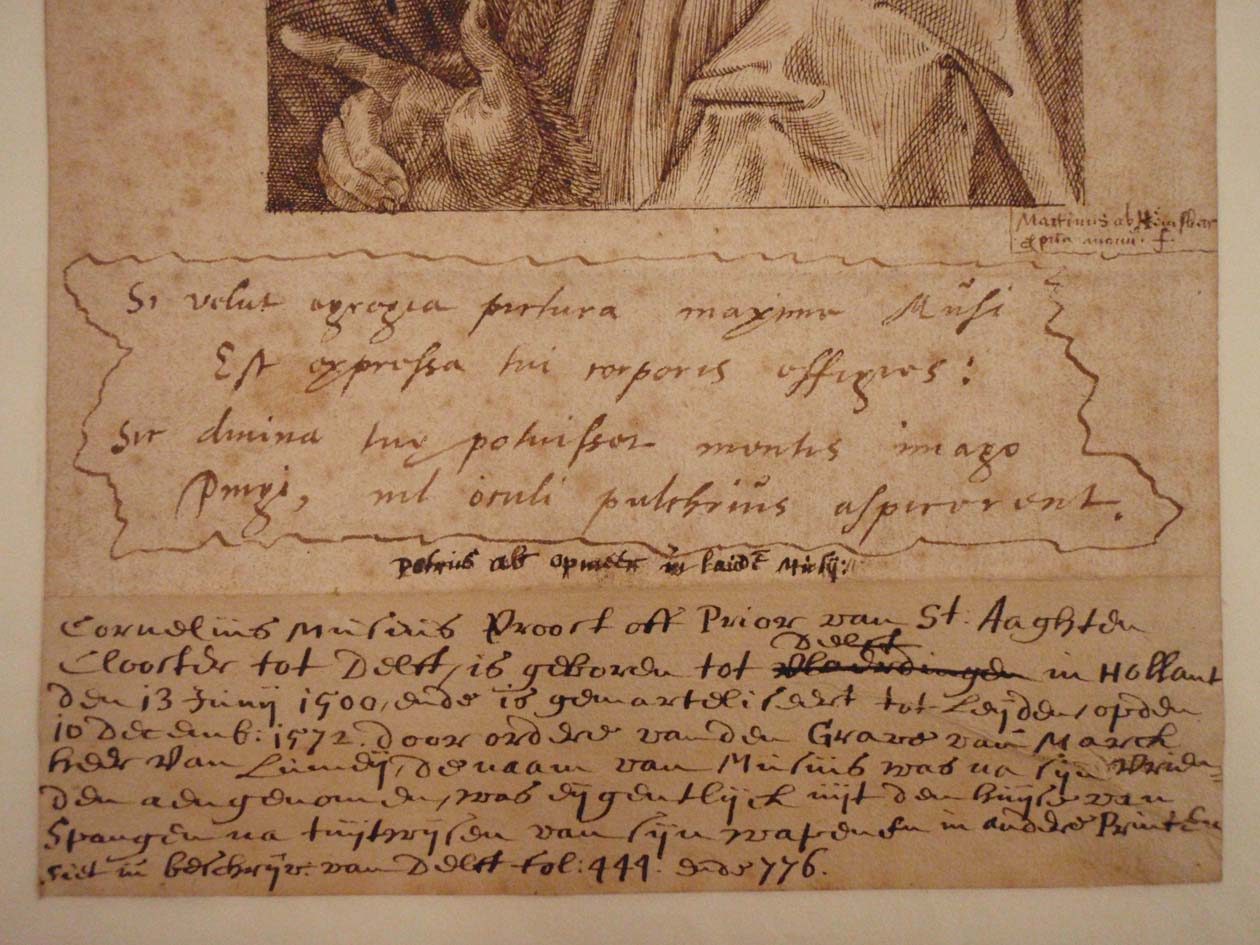 Martinus ab Hemsker
Si velut egregia pictura maxime Musi
Est expressa tui corporis effigies:
Sic divina tuę potuisset mentis imago
Pingi, nil oculi pulchrius aspicerent.
Petrus ab opmeer in laudē Musij:
Cornelius Musius Proost off Prior van St: Aaghten
Delft
Clooster tot Delft, is geboren tot vlaerdingen in Hollant
den 13 Junij 1500, ende is gemarteliseert tot Leijden, opden
10 decemb: 1572. door ordre vanden Grave van March
heer van Lumeij, de naam van Musius was na sijn vrien=
den aengenomen, was eijgentlijck uijt den huijse van
Spangen na tuijtwijsen van sijn wapenen in andre Printen
siet in beschrijv: van Delft fol: 444. ende 776.